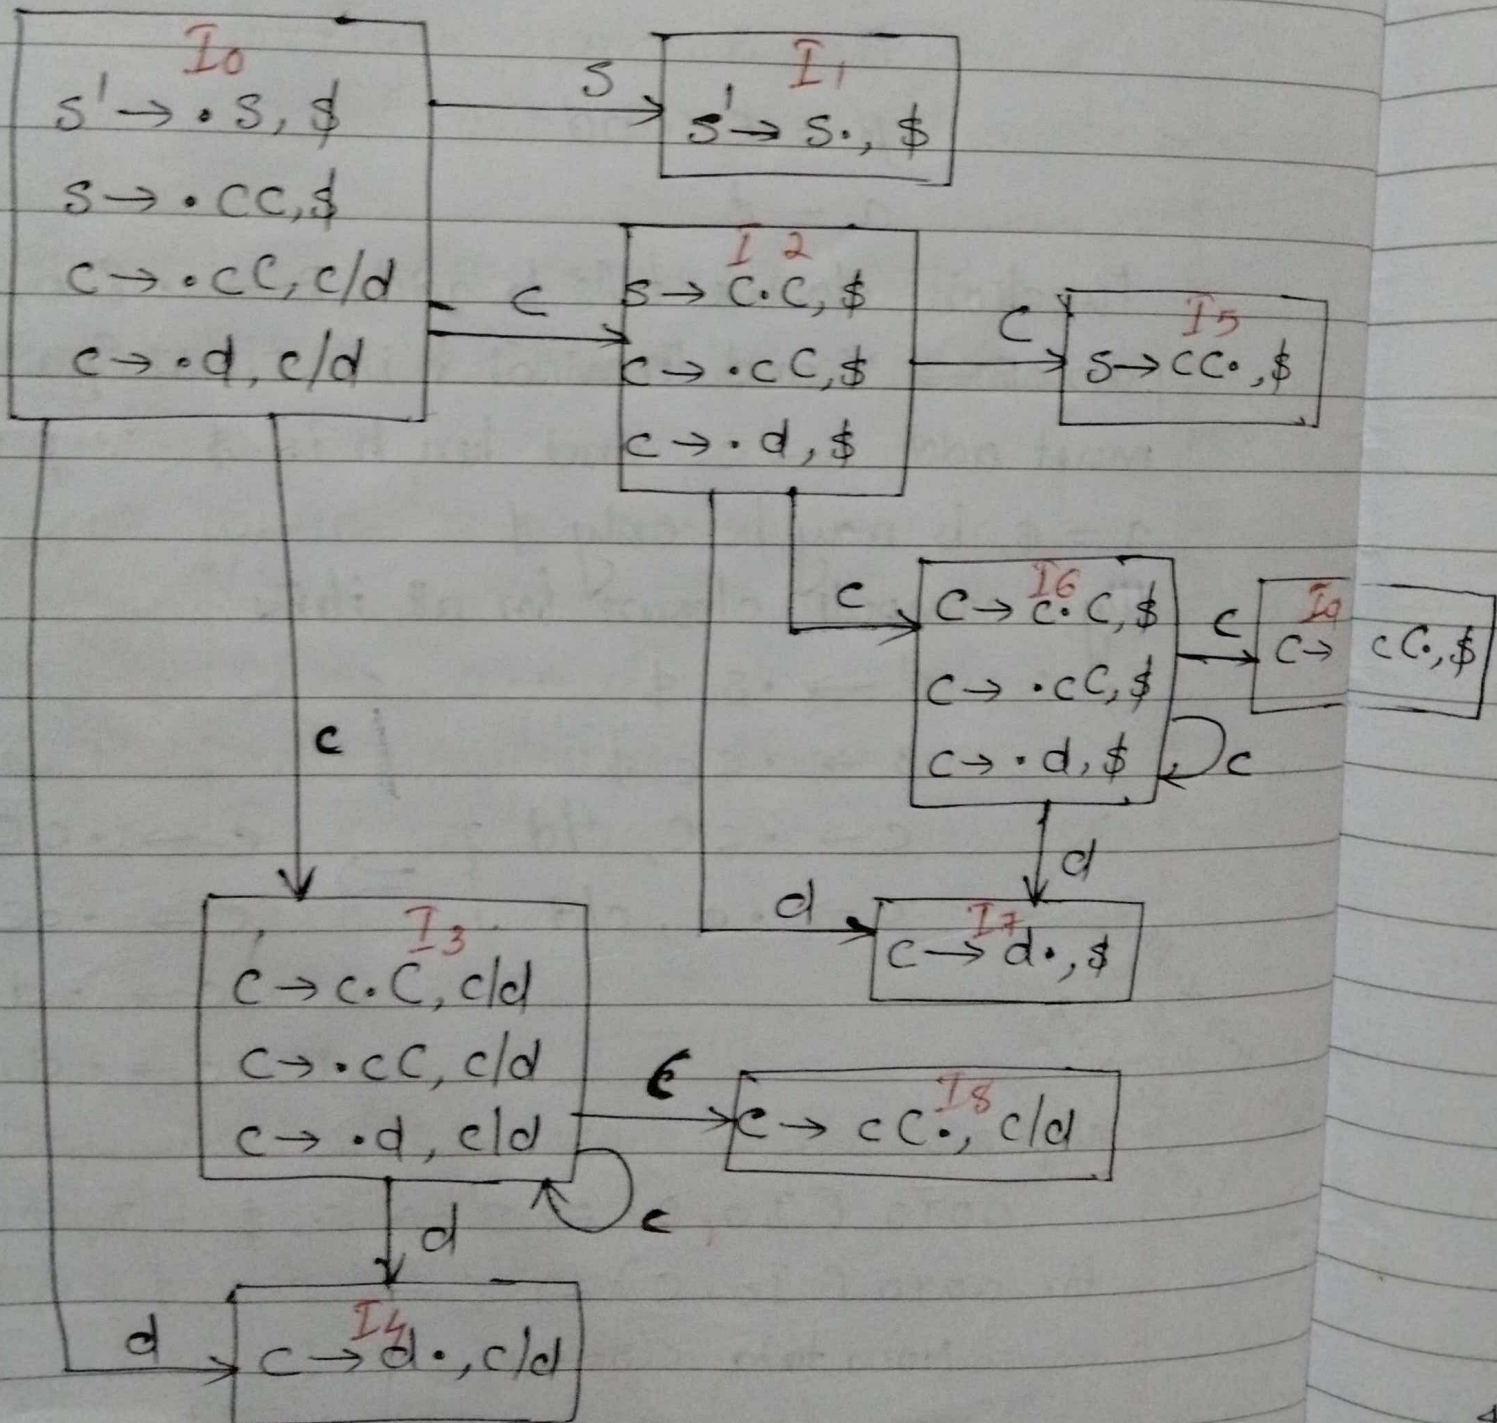 I0
S' → . S, $
S → . CC, $
C → . cC, c/d
C → . d, c/d
S
I1
S' → S., $
C
I 2
S → C.C, $
C → . cC, $
C → . d, $
C
I5
S → CC., $
c
I6
C → c.C, $
C → . cC, $
C → . d, $
C
I9
C → cC., $
c
d
d
I7
C → d., $
c
I3
C → c.C, c/d
C → . cC, c/d
C → . d, c/d
C
I8
C → cC., c/d
c
d
d
I4
C → d., c/d